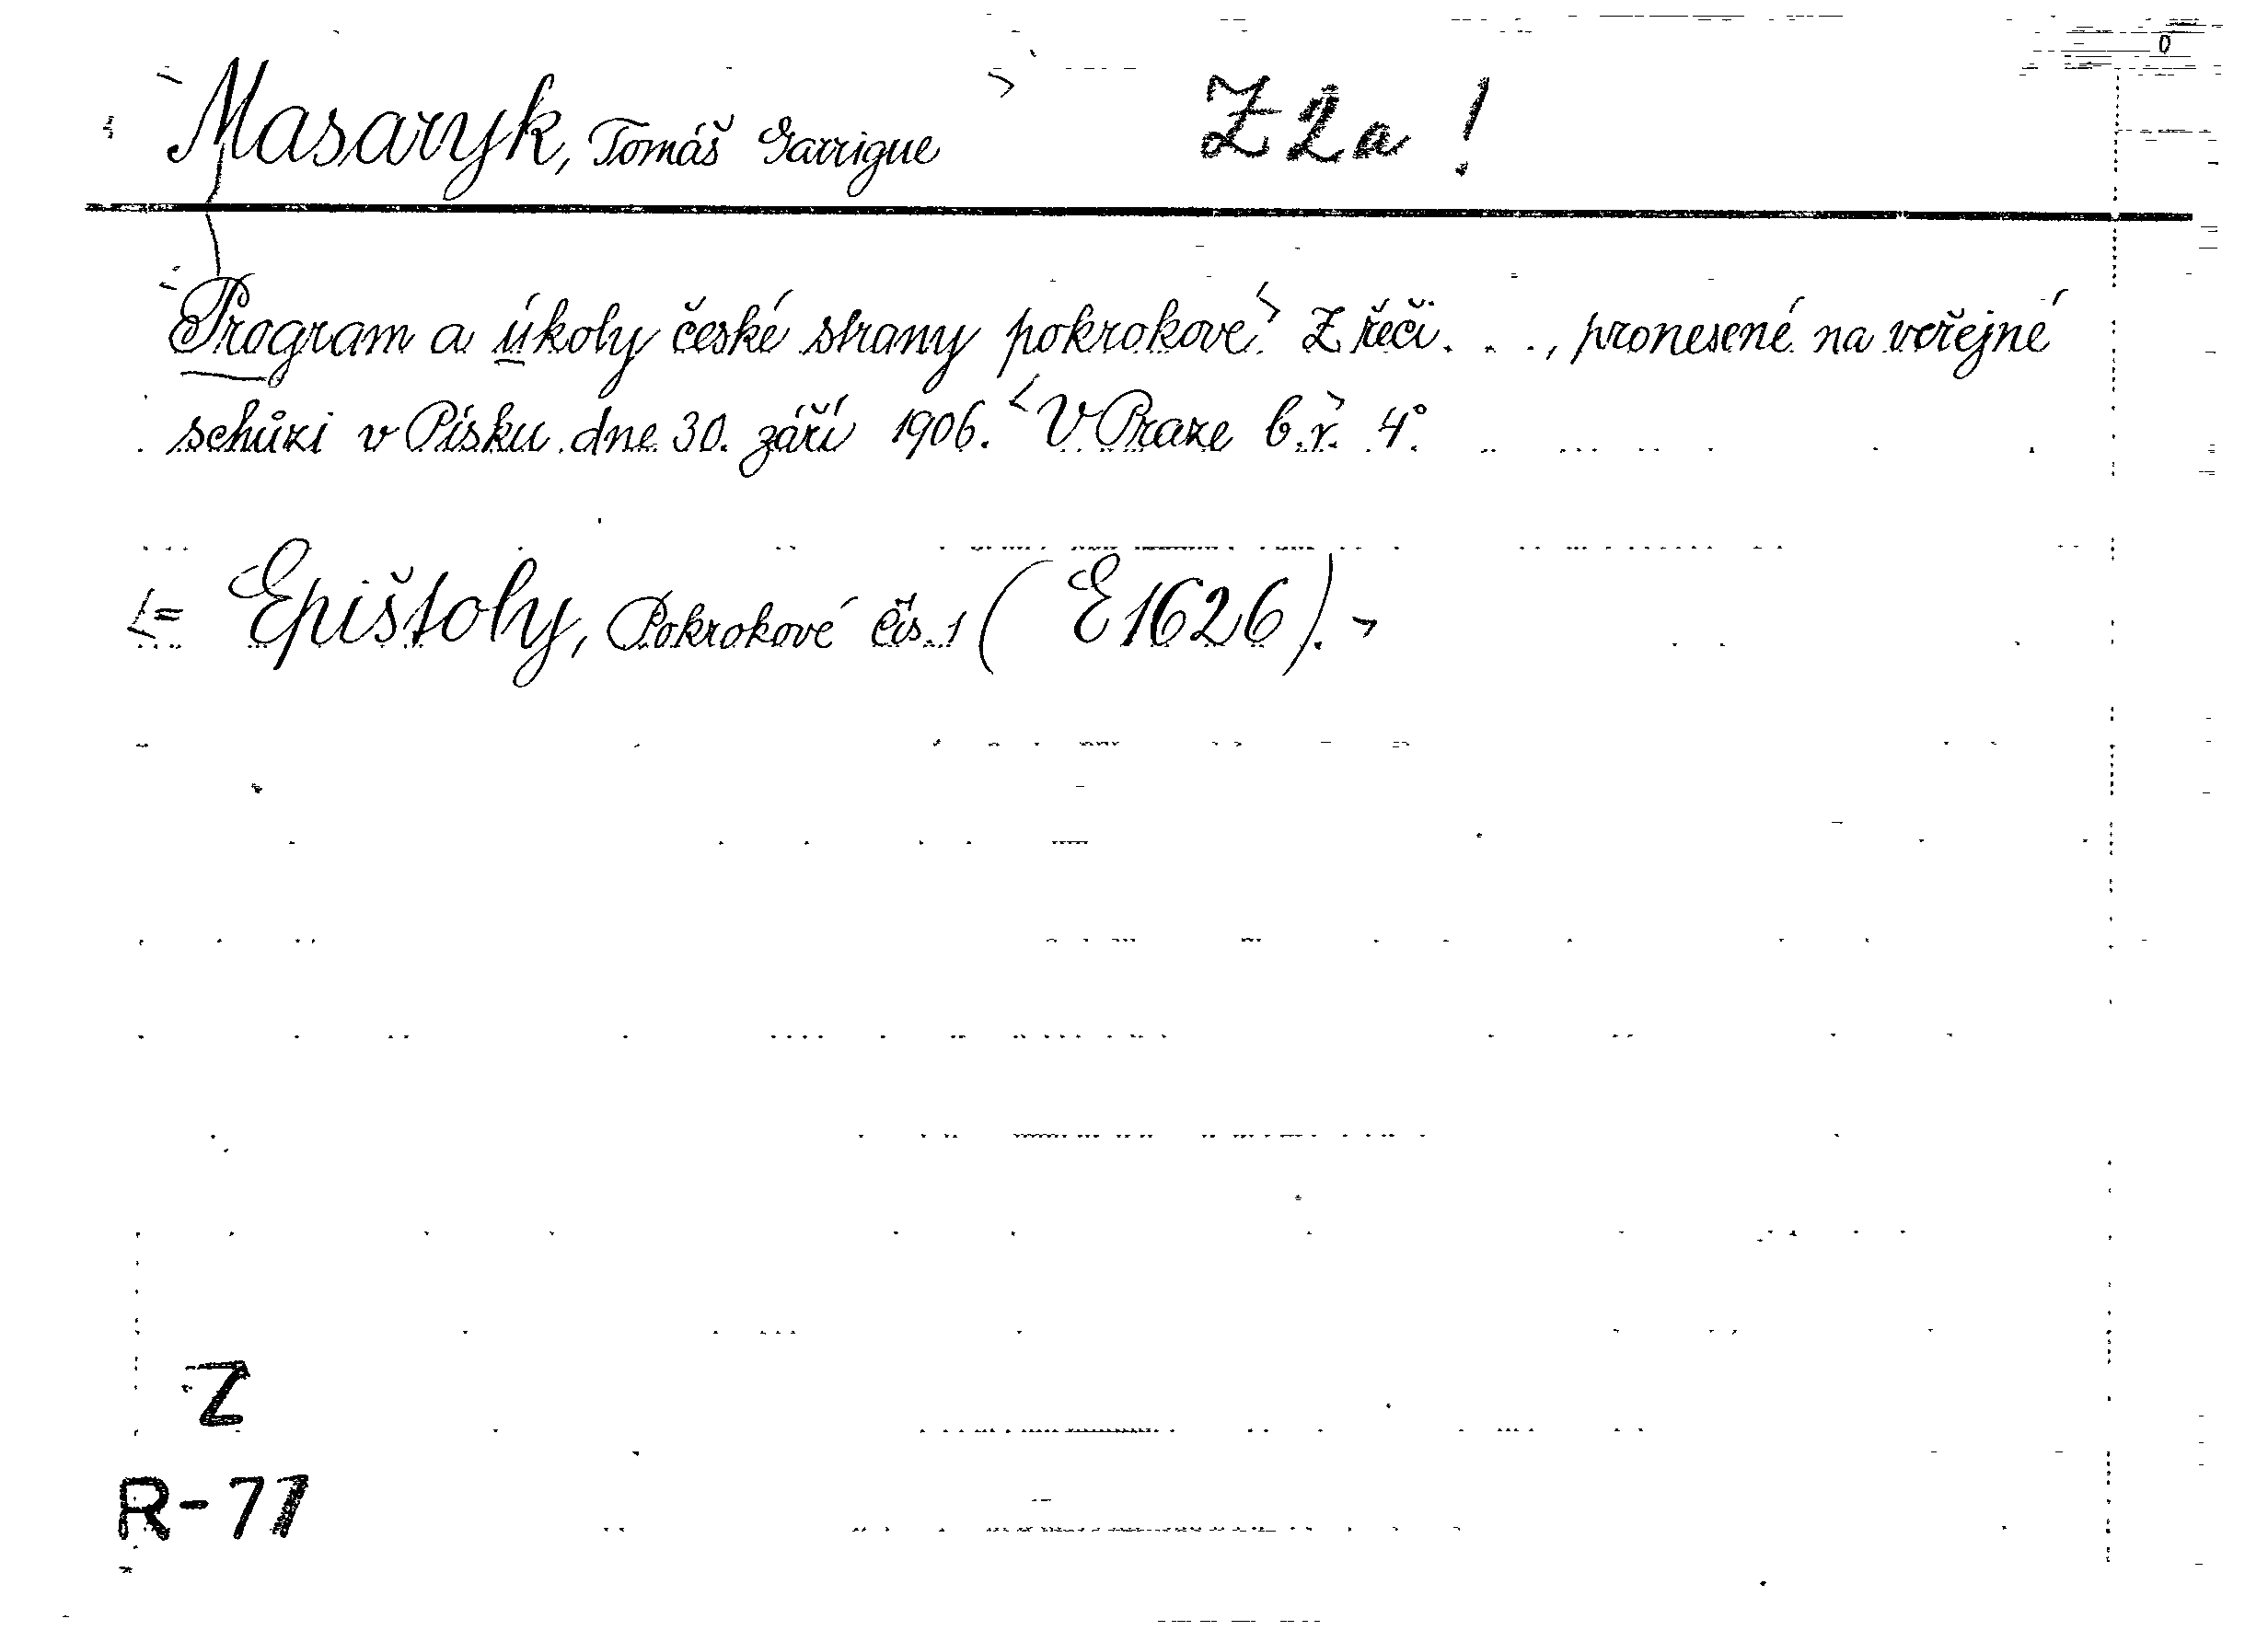 Masaryk, Tomáš Garrigue Z 2a !
Program a úkoly české strany pokrokové. Z řeči . . ., pronesené na veřejné
schůzi v Písku dne 30. září 1906. V Praze b. r. 4°
= Epištoly, Pokrokové čís. 1 (E 1626).
Z
R-77